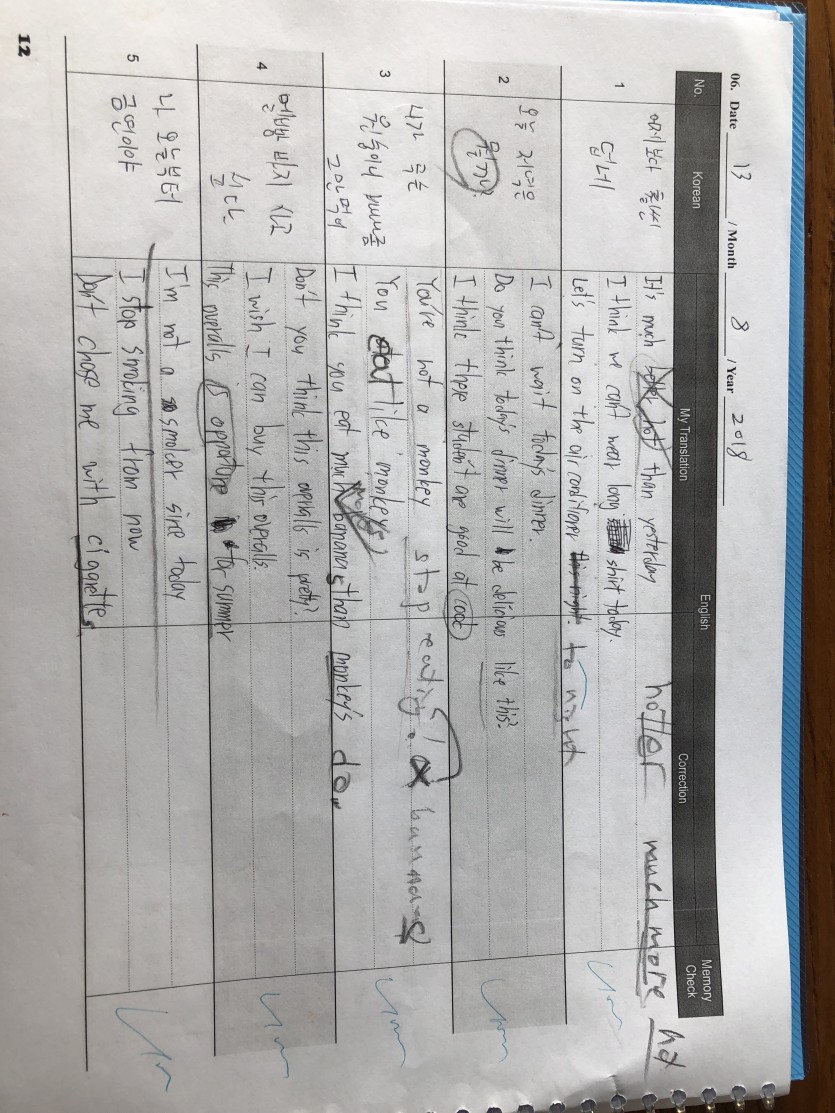 06. Date 13 / Month 8 / Year 2018
No. Korean English Memory Check
My Translation Correction
1
어제보다 훨씬
덥네
It's much than yesterday hotter much more hot
I think we can't wear long shirt today.
Let's turn on the air conditioner to night
2
오늘 저녁은
뭘까?
I can't wait today's dinner.
Do you think today's dinner will be delicious like this?
I think these student are good at cook
3
니가 무슨
원숭이니 바나나좀
그만먹어
You're not a monkey stop eating bannanas
You eat like monkeys
I think you eat much more bananas than monkey's do.
4
멜빵 바지 사고
싶다
Don't you think this overalls is pretty?
I wish I can buy this overalls.
This overalls is for summer
5
나 오늘부터
금연이야
I'm not a smoker since today
I stop smoking from now
Don't chase me with ciggrettes
12